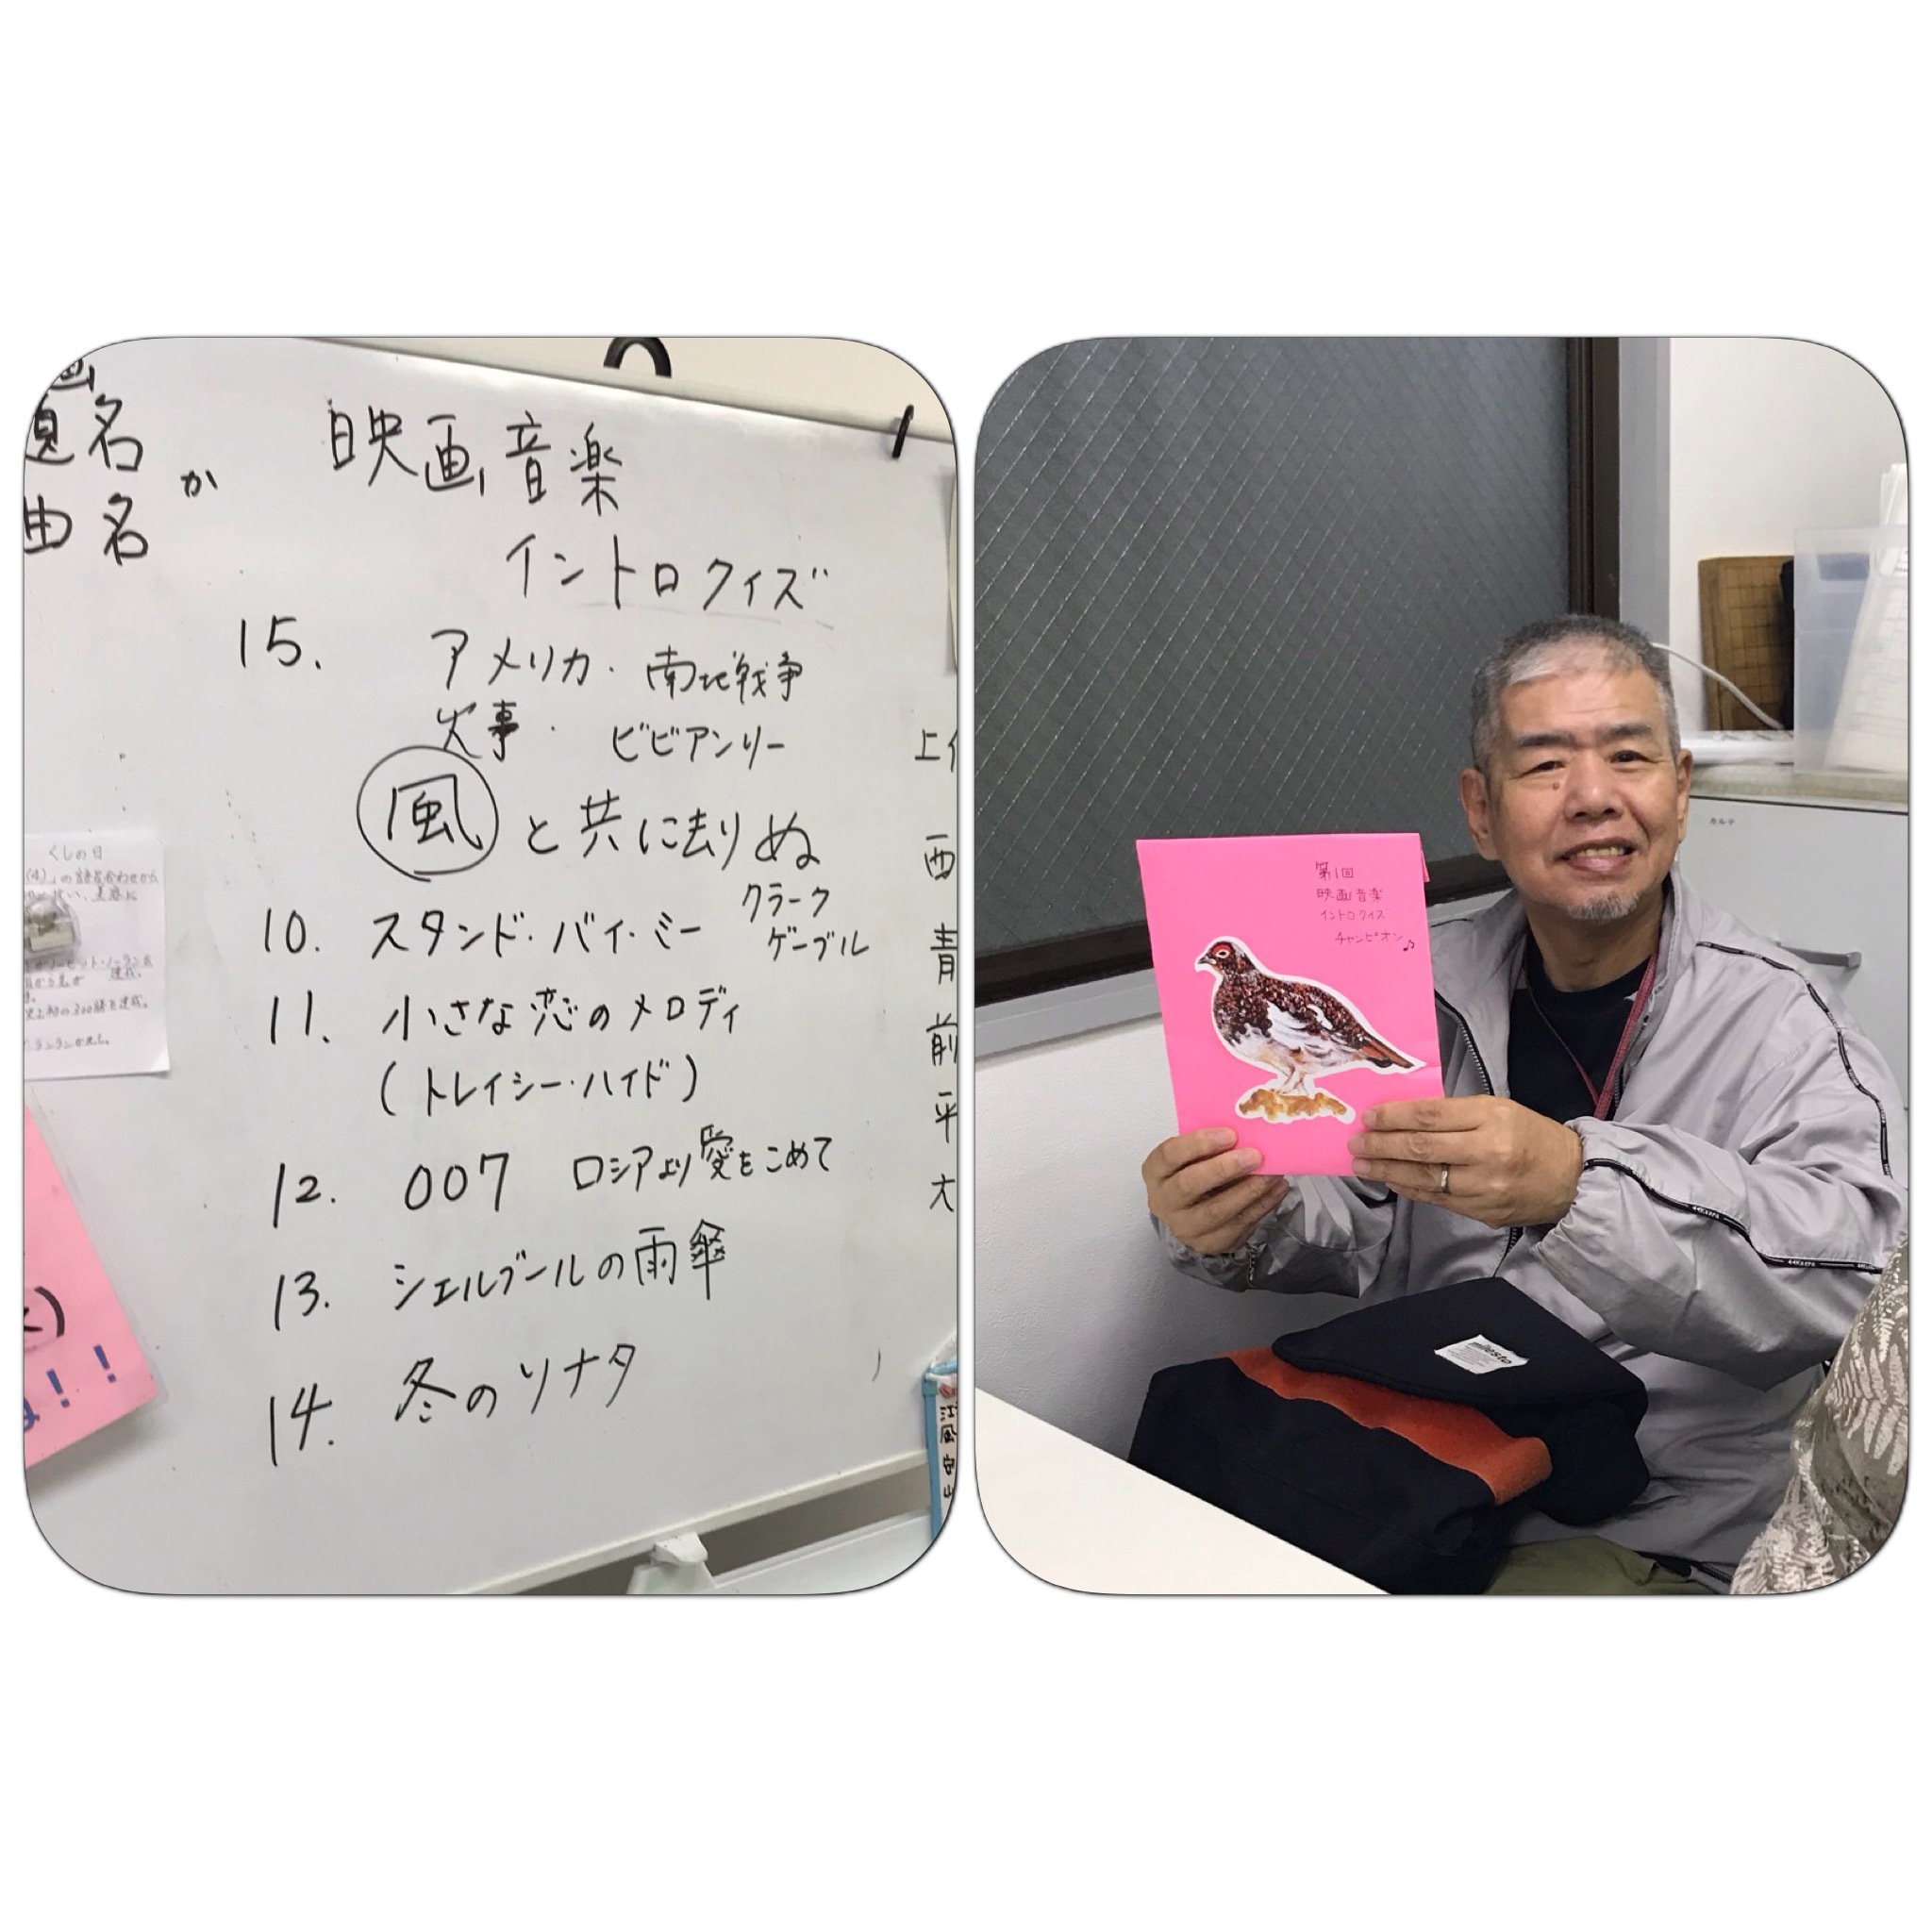 題名
か
曲名
映画音楽
イントロクイズ
15. アメリカ・南北戦争
火事・ビビアンリー
風と共に去りぬ
クラーク
ゲーブル
10. スタンド・バイ・ミー
11. 小さな恋のメロディ
(トレイシー・ハイド)
12. 007 ロシアより愛をこめて
13. シェルブールの雨傘
14. 冬のソナタ
上
西
青
前
平
大
くしの日
第1回
映画音楽
イントロクイズ
チャンピオン♪
カルテ
milesto